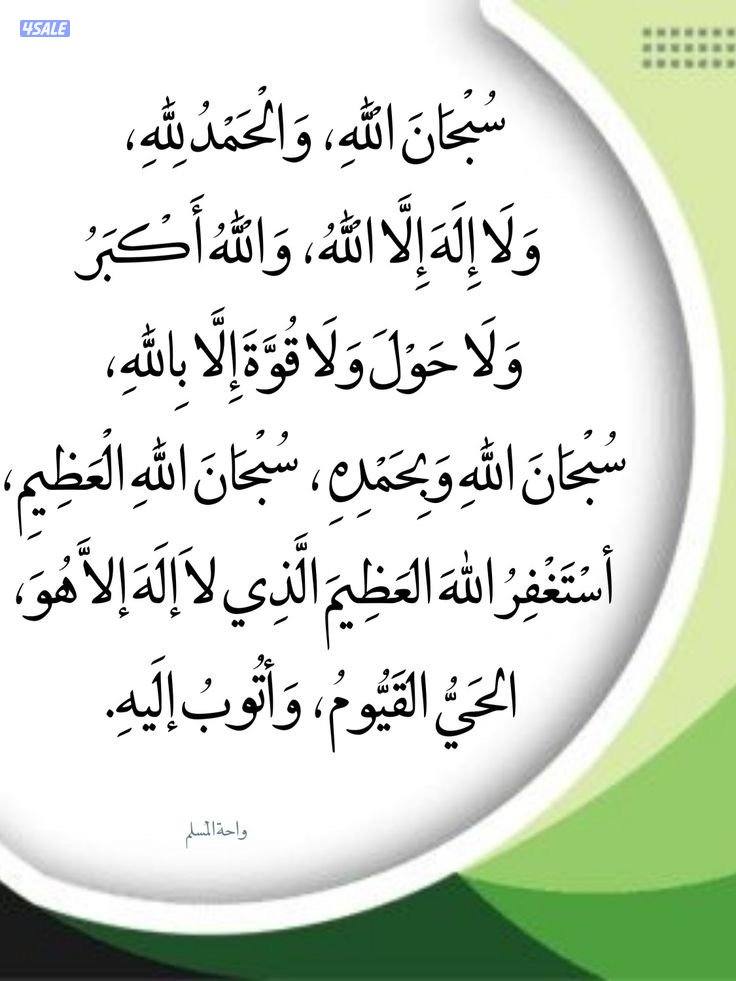 4SALE
سُبْحَانَ اللَّهِ، وَالْحَمْدُ لِلَّهِ،
وَلَا إِلَهَ إِلَّا اللَّهُ، وَاللَّهُ أَكْبَرُ
وَلَا حَوْلَ وَلَا قُوَّةَ إِلَّا بِاللَّهِ،
سُبْحَانَ اللَّهِ وَبِحَمْدِهِ، سُبْحَانَ اللَّهِ الْعَظِيمِ،
أسْتَغْفِرُ اللَّهَ العَظِيمَ الَّذِي لاَ إلَهَ إلاَّ هُوَ،
الحَيُّ القَيُّومُ، وَأتُوبُ إلَيهِ.
واحة المسلم